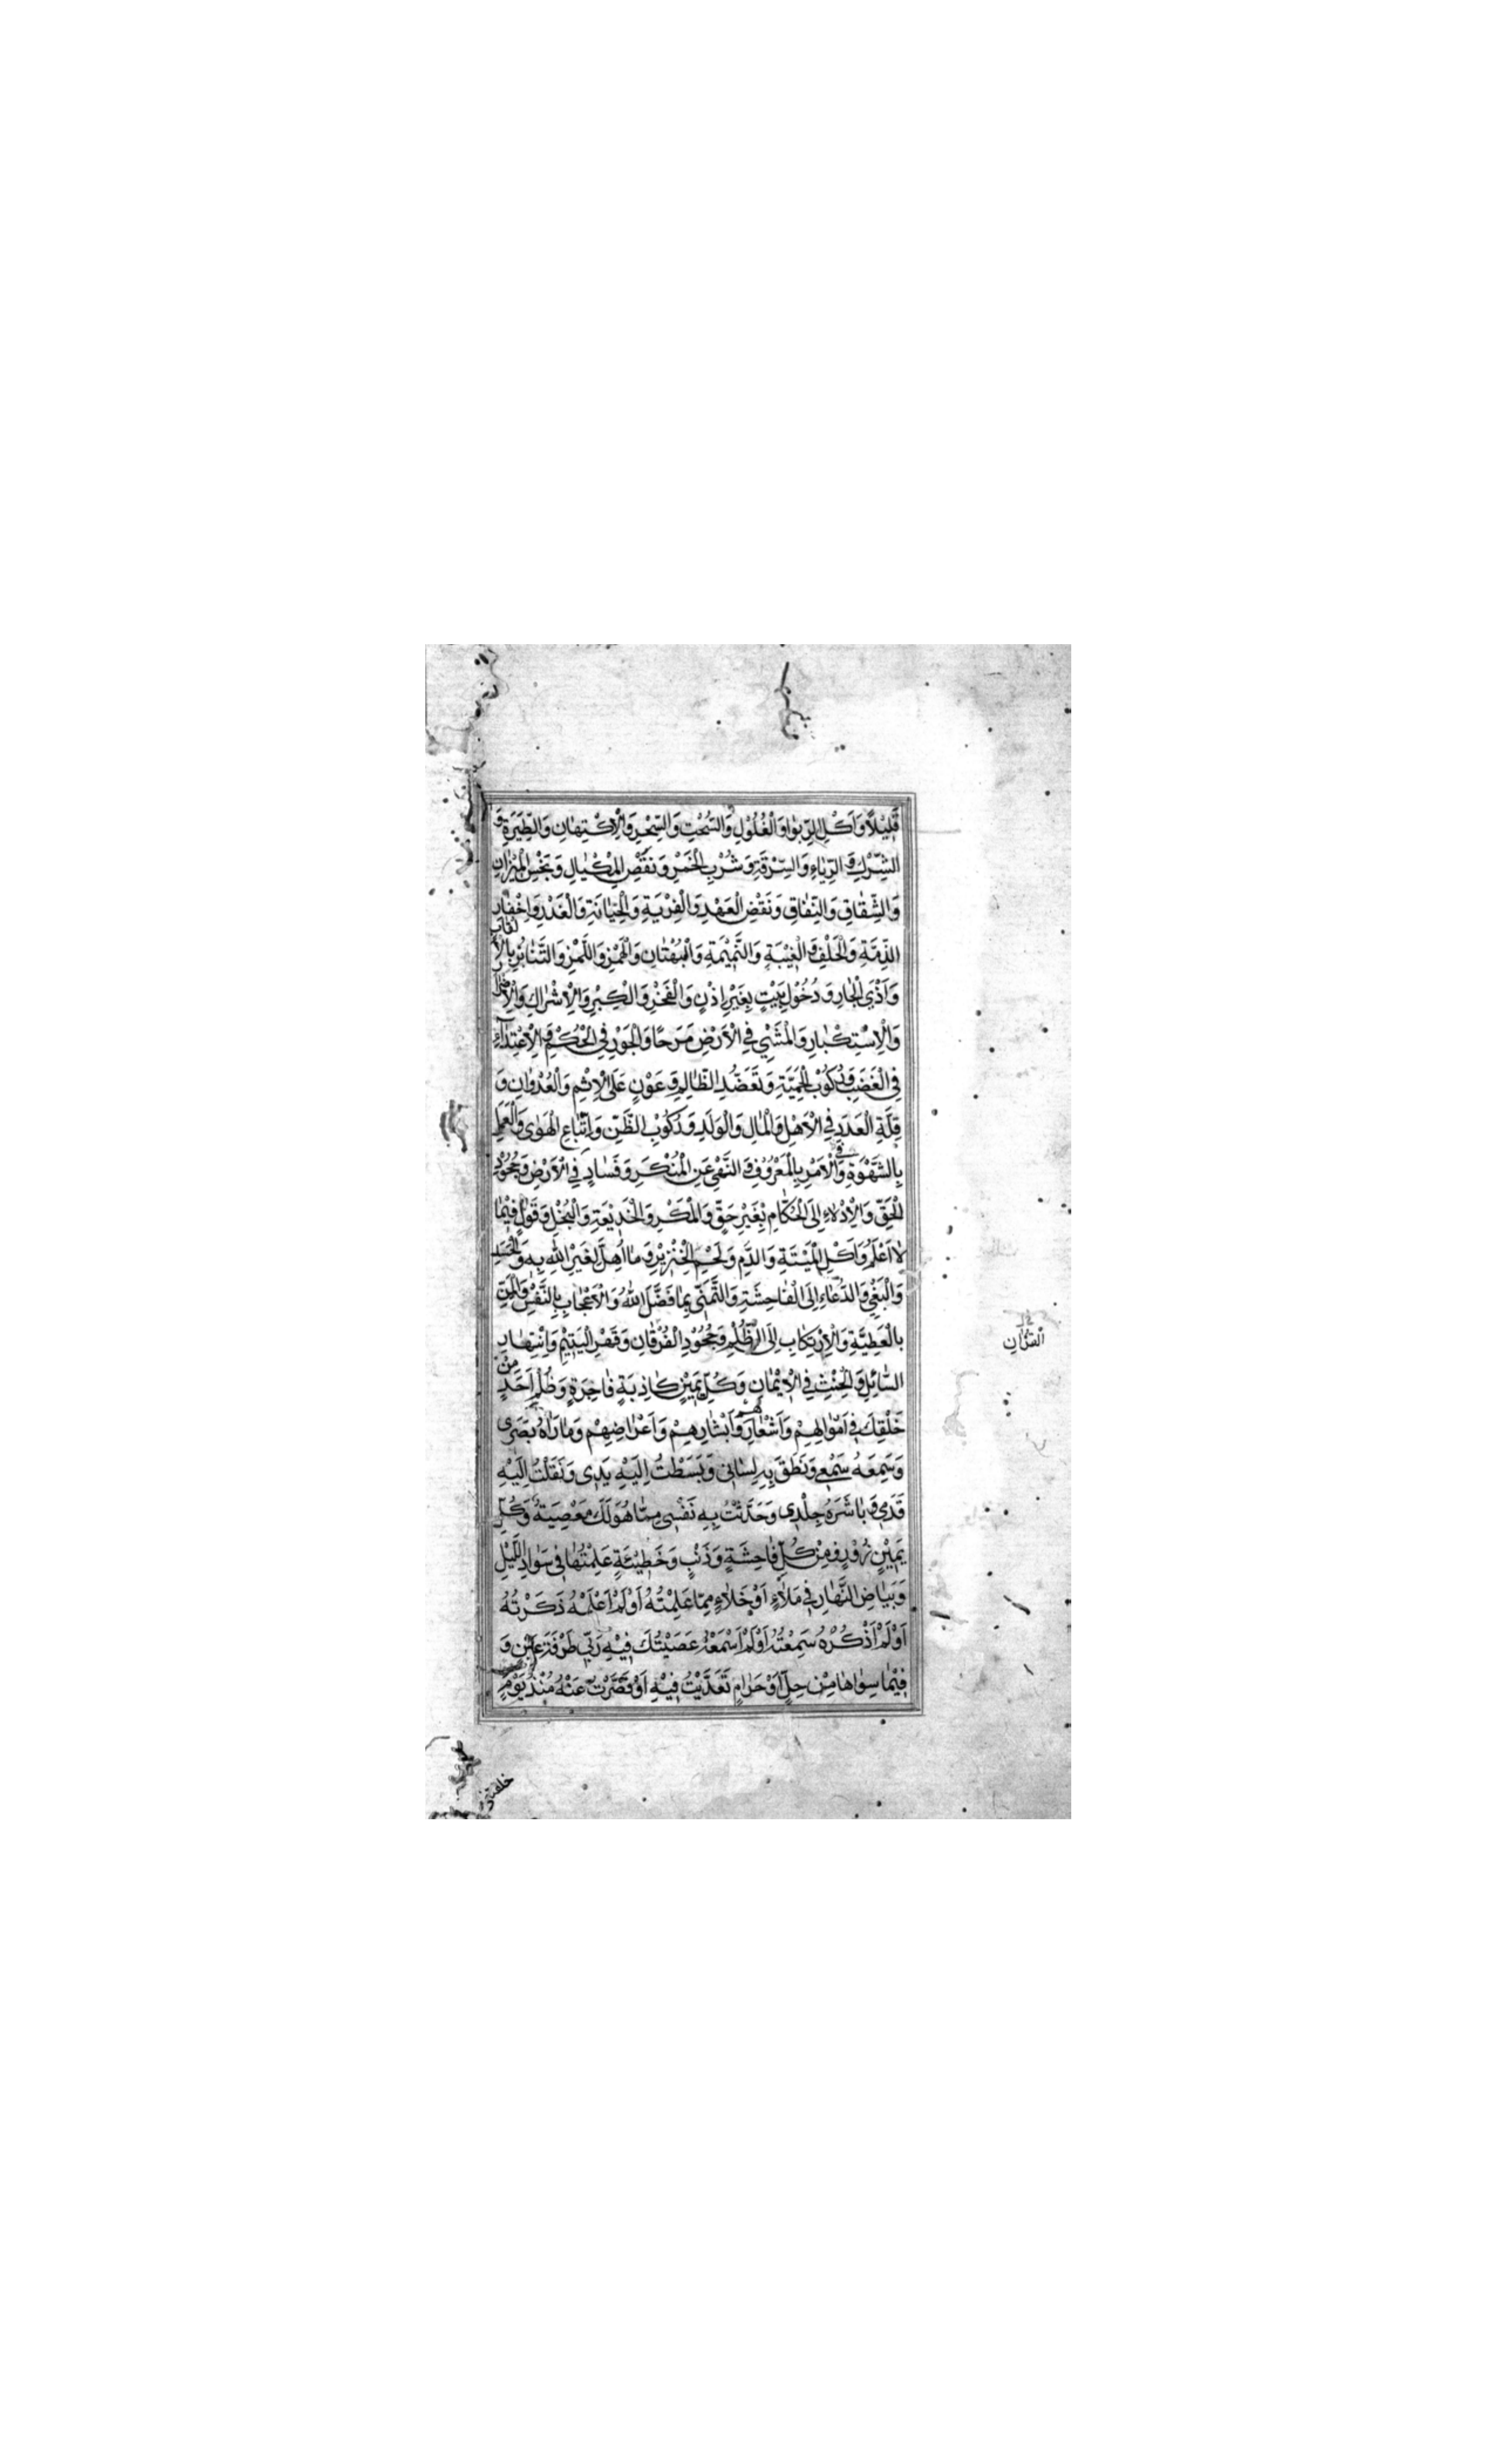 قَلِيْلًا وَاَكْلِ الرِّبٰوا وَالْغُلُوْلِ وَالسُّحْتِ وَالسِّحْرِ وَالْاِكْتِهٰانِ وَالطِّيَرَةِ وَ
الشِّرْكِ وَ الرِّيٰاءِ وَالسِّرْقَةِ وَ شُرْبِ الْخَمْرِ وَ نَقْصِ الْمِكْيٰالِ وَ بَخْسِ الْمِيْزٰانِ
وَالشِّقٰاقِ وَالنِّفٰاقِ وَ نَقْضِ الْعَهْدِ وَ الْفِرْيَةِ وَ الْخِيٰانَةِ وَالْغَدْرِ وَ اِخْفٰارِ
الذِّمَّةِ وَ الْحَلْفِ وَ الْغِيْبَةِ وَالنَّمِيْمَةِ وَالْبُهْتٰانِ وَالْهَمْزِ وَاللَّمْزِ وَالتَّنٰابُزِ بِالْاَلْقٰابِ
وَ اَذَى الْجٰارِ وَ دُخُوْلِ بَيْتٍ بِغَيْرِ اِذْنٍ وَ الْفَخْرِ وَ الْكِبْرِ وَ الْاِشْرٰاكِ وَ الْاِصْرٰارِ
وَ الْاِسْتِكْبٰارِ وَ الْمَشْيِ فِي الْاَرْضِ مَرَحًا وَ الْجَوْرِ فِي الْحُكْمِ وَ الْاِعْتِدٰاءِ
فِي الْغَضَبِ وَ رُكُوْبِ الْحَمِيَّةِ وَ تَعَضُّدِ الظّٰالِمِ وَ عَوْنٍ عَلَى الْاِثْمِ وَالْعُدْوٰانِ وَ
قِلَّةِ الْعَدَدِ فِي الْاَهْلِ وَ الْمٰالِ وَ الْوَلَدِ وَ رُكُوْبِ الظَّنِّ وَ اِتِّبٰاعِ الْهَوٰى وَ الْعَمَلِ
بِالشَّهْوَةِ وَ الْاَمْرِ بِالْمَعْرُوْفِ وَ النَّهْيِ عَنِ الْمُنْكَرِ وَ فَسٰادٍ فِي الْاَرْضِ وَ جُحُوْدِ
الْحَقِّ وَ الْاِدْلٰاءِ اِلَى الْحُكّٰامِ بِغَيْرِ حَقٍّ وَ الْمَكْرِ وَ الْخَدِيْعَةِ وَ الْبُخْلِ وَ قَوْلٍ فِيْمٰا
لٰا اَعْلَمُ وَ اَكْلِ الْمَيْتَةِ وَ الدَّمِ وَ لَحْمِ الْخِنْزِيْرِ وَ مٰا اُهِلَّ لِغَيْرِ اللّٰهِ بِهٖ وَ الْحَسَدِ
وَ الْبَغْيِ وَ الدُّعٰاءِ اِلَى الْفٰاحِشَةِ وَ التَّمَنّٖى بِمٰا فَضَّلَ اللّٰهُ وَ الْاِعْجٰابِ بِالنَّفْسِ وَ الْمَنِّ
بِالْعَطِيَّةِ وَ الْاِرْتِكٰابِ اِلَى الظُّلْمِ وَ جُحُوْدِ الْفُرْقٰانِ وَ قَهْرِ الْيَتِيْمِ وَ اِنْتِهٰارِ
السّٰائِلِ وَ الْحِنْثِ فِي الْاَيْمٰانِ وَ كُلِّ يَمِيْنٍ كٰاذِبَةٍ فٰاجِرَةٍ وَ ظُلْمِ اَحَدٍ مِنْ
خَلْقِكَ فِي اَمْوٰالِهِمْ وَ اَشْعٰارِهِمْ وَ اَبْشٰارِهِمْ وَ اَعْرٰاضِهِمْ وَ مٰا رَاٰهُ بَصَرٖى
وَ سَمِعَهُ سَمْعٖى وَ نَطَقَ بِهٖ لِسٰانٖى وَ بَسَطْتُ اِلَيْهِ يَدٖى وَ نَقَلْتُ اِلَيْهِ
قَدَمٖى وَ بٰاشَرَهُ جِلْدٖى وَ حَدَّثْتُ بِهٖ نَفْسٖى مِمّٰا هُوَ لَكَ مَعْصِيَةٌ وَ كُلِّ
يَمِيْنٍ زُوْرٍ وَ مِنْ كُلِّ فٰاحِشَةٍ وَ ذَنْبٍ وَ خَطِيْئَةٍ عَمِلْتُهٰا فٖى سَوٰادِ اللَّيْلِ
وَ بَيٰاضِ النَّهٰارِ فٖى مَلَاءٍ اَوْ خَلٰاءٍ مِمّٰا عَلِمْتُهُ اَوْ لَمْ اَعْلَمْهُ ذَكَرْتُهُ
اَوْ لَمْ اَذْكُرْهُ سَمِعْتُهُ اَوْ لَمْ اَسْمَعْهُ عَصَيْتُكَ فٖيْهِ رَبّٖى طَرْفَةَ عَيْنٍ وَ
فٖيْمٰا سِوٰاهٰا مِنْ حِلٍّ اَوْ حَرٰامٍ تَعَدَّيْتُ فٖيْهِ اَوْ قَصَّرْتُ عَنْهُ مُنْذُ يَوْمَ
الْقُرْاٰنِ
خلقتنى